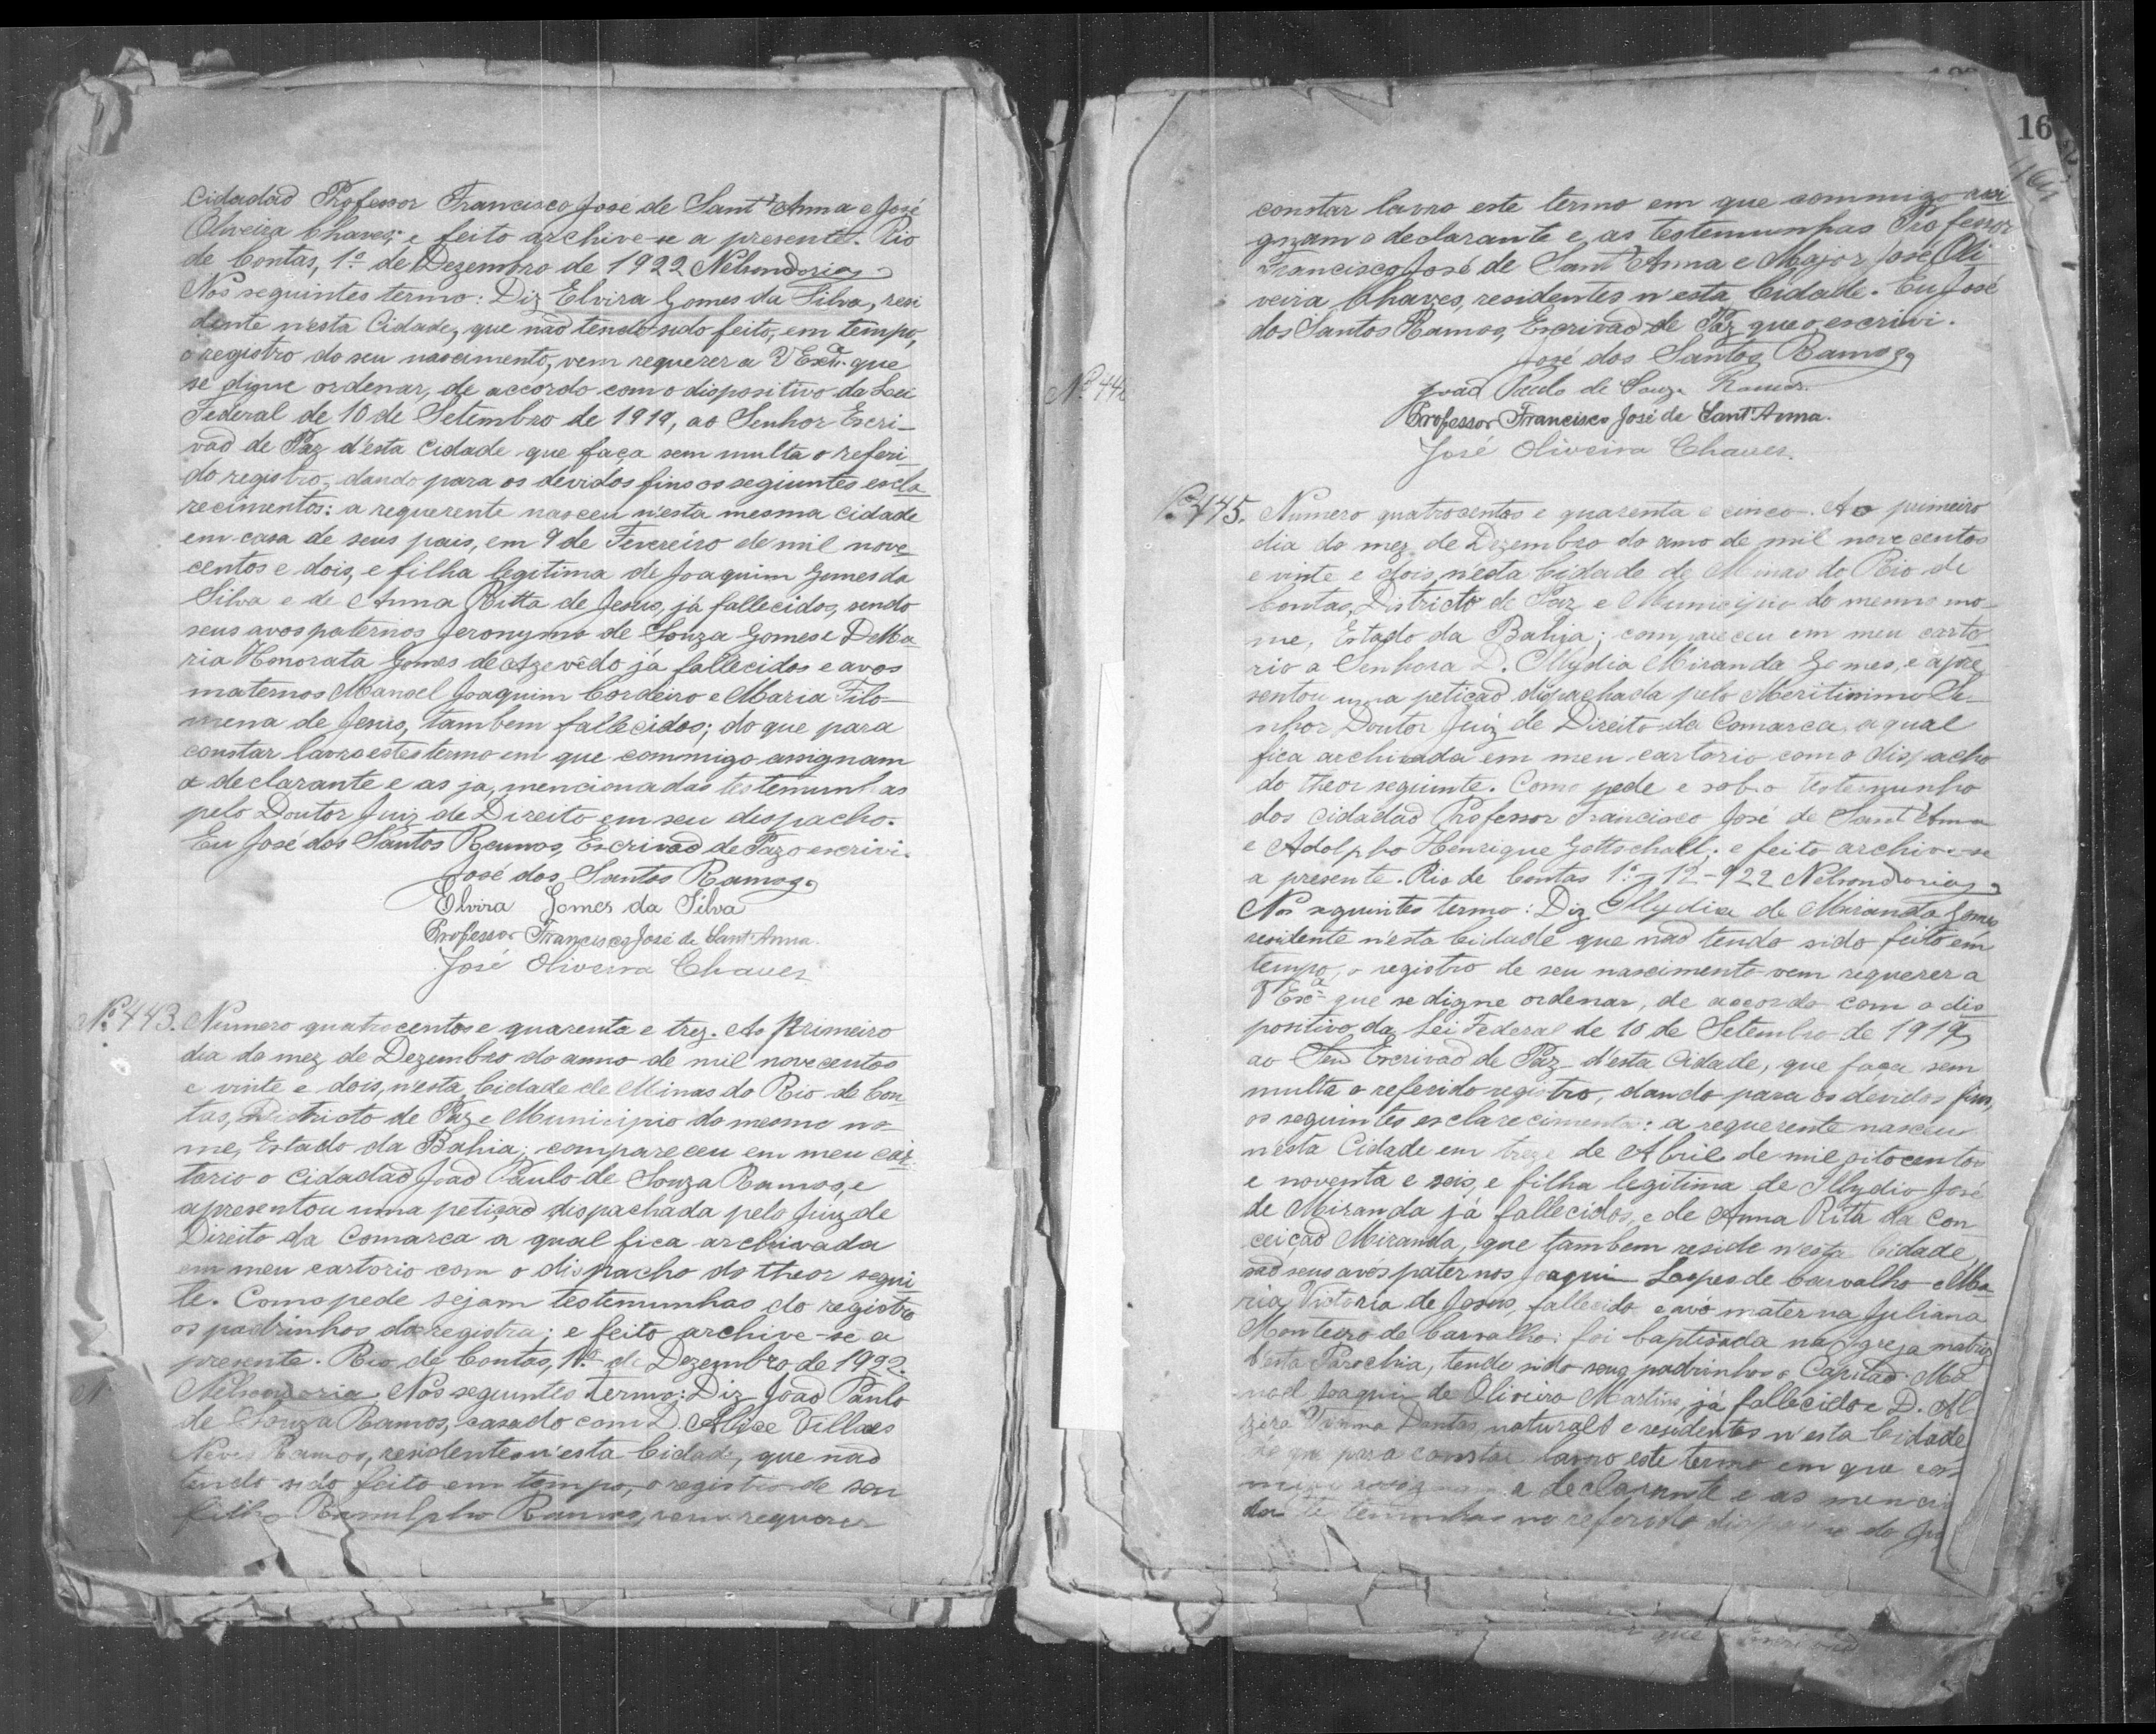 cidadaõ Professor Francisco José de Sant'Anna e José
Oliveira Chaves; e feito archive-se a presente. Rio
de Contas, 1º de Dezembro de 1922 Nelsondorias
Nos seguintes termo: Diz Elvira Gomes da Silva, resi
dente n'esta Cidade, que naõ tendo sido feito, em tempo,
o registro do seu nascimento, vem requerer a V Excia. que
se digne ordenar, de accordo com o dispositivo da Lei
Federal de 10 de Setembro de 1919, ao Senhor Escri-
vaõ de Paz d'esta cidade que faça sem multa o referi-
do registro, dando para os devidos fins os seguintes escla
recimentos: a requerente nasceu n'esta mesma cidade
em casa de seus pais, em 9 de Fevereiro de mil nove
centos e dois, e filha legitima de Joaquim Gomes da
Silva e de Anna Ritta de Jesus, já fallecidos, sendo
seus avos paternos Jeronymo de Souza Gomes e D. Ma
ria Honorata Gomes de Azevêdo já fallecidos e avos
maternos Manoel Joaquim Cordeiro e Maria Filo-
mena de Jesus, tambem fallecidos; do que para
constar lavro estes termo em que commigo assignam
a declarante e as ja mencionadas testemunhas
pelo Doutor Juiz de Direito em seu despacho.
Eu José dos Santos Ramos, Escrivaõ de Paz o escrivi.
José dos Santos Ramos
Elvira Gomes da Silva
Professor Francisco José de Sant'Anna.
José Oliveira Chaves
Nº 443. Numero quatrocentos e quarenta e trez. Ao primeiro
dia do mez de Dezembro do anno de mil novecentos
e vinte e dois, n'esta Cidade de Minas do Rio de Con
tas, Districto de Paz e Municipio do mesmo no
me, Estado da Bahia; compareceu em meu car
torio o cidadaõ Joaõ Paulo de Souza Ramos, e
apresentou uma petiçaõ despachada pelo Juiz de
Direito da Comarca a qual fica archivada
em meu cartorio com o dispacho do theor segui
te. Como pede sejam testemunhas do registro
os padrinhos do registra; e feito archive-se a
presente. Rio de Contas, 1º de Dezembro de 1922.
Nelsondorias Nos seguintes termo: Diz Joaõ Paulo
de Souza Ramos, casado com D. Alice Villas
Neves Ramos, residentes n'esta Cidade, que naõ
tendo sido feito em tempo, o registro de seu
filho Ranulpho Ramos, vem requerer
16
constar lavro este termo em que commigo assi
gnam o declarante e as testemunhas Professor
Francisco José de Sant'Anna e Major José Oli
veira Chaves, residentes n'esta Cidade. Eu José
dos Santos Ramos, Escrivaõ de Paz que o escrivi.
José dos Santos Ramos
Joaõ Paulo de Souza Ramos.
Professor Francisco José de Sant'Anna.
José Oliveira Chaves.
Nº 44
Nº 445. Numero quatrosentos e quarenta e cinco. Ao primeiro
dia do mez de Dezembro do anno de mil novecentos
e vinte e dois, n'esta Cidade de Minas do Rio de
Contas, Districto de Paz e Municipio do mesmo no-
me, Estado da Bahia; compareceu em meu carto-
rio a Senhora D. Illydia Miranda Gomes, e apre
sentou uma petiçaõ dispachada pelo Meritissimo Se-
nhor Doutor Juiz de Direito da Comarca, a qual
fica archivada em meu cartorio com o dispacho
do theor seguinte. Como pede e sob o testemunho
dos cidadaõ Professor Francisco José de Sant'Anna
e Adolpho Henrique Gottschall; e feito archive-se
a presente. Rio de Contas 1º-12-922 Nelsondorias
Nos seguintes termo: Diz Illydia de Miranda Gomes
residente n'esta Cidade que naõ tendo sido feito em
tempo, o registro de seu nascimento vem requerer a
V Excia que se digne ordenar, de accordo com o dis
positivo da Lei Federal de 10 de Setembro de 1919,
ao Escrivaõ de Paz d'esta Cidade, que faça sem
multa o referido registro, dando para os devidos fins,
os seguintes esclarecimentos: a requerente nasceu
n'esta Cidade em treze de Abril de mil oitocentos
e noventa e seis, e filha legitima de Illydio José
de Miranda já fallecidos, e de Anna Rita da Con
ceiçaõ Miranda, que tambem reside n'esta Cidade,
saõ seus avos paternos Joaquim Lopes de Carvalho e Ma
ria Victoria de Jesus, fallecido e avó materna Juliana
Monteiro de Carvalho: foi baptisada na Igreja matriz
d'esta Parochia, tendo sido seus padrinhos o Capitaõ Ma
noel Joaquim de Oliveira Martins, já fallecido e D. Al
zira Vianna Dantas naturaes e residentes n'esta Cidade
que para constar lavro este termo em que com
migo assignam a declarante e as menci
da testemunhas no referido dispacho do Ju